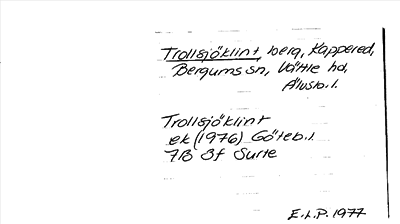 Trollsjöklint, berg, Kappered,
Bergums sn, Vättle hd,
Älvsb. l.
Trollsjöklint
ek (1976) Göteb. l.
7B 8f Surte
E.L.P. 1977